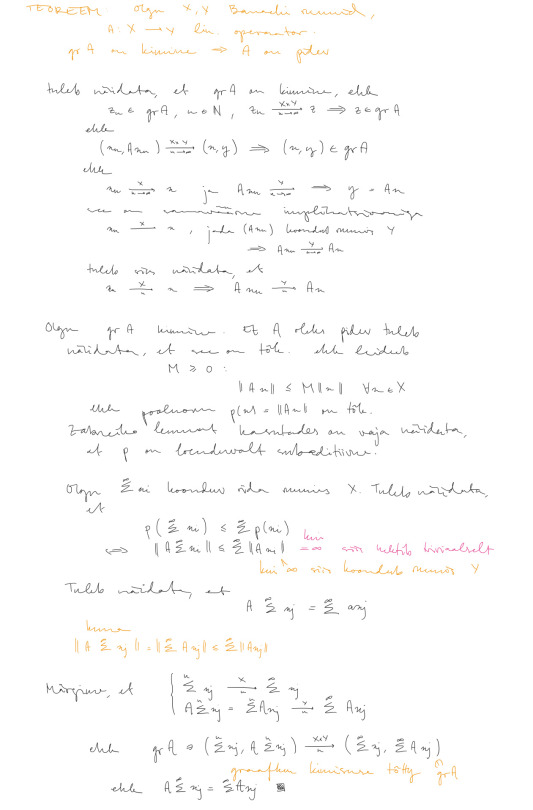 TEOREEM. Olgu X, Y Banachi ruumid,
A: X → Y lin. operaator.
gr A on kinnine ⇒ A on pidev
tuleb näidata, et gr A on kinnine, ehk
zn ∈ gr A, n ∈ N, zn X×Y→ n→∞ z ⇒ z ∈ gr A
ehk
(xn, Axn) X×Y→ n→∞ (x, y) ⇒ (x, y) ∈ gr A
ehk
xn X→ n→∞ x ja Axn Y→ n→∞ ⇒ y = Ax
see on samaväärne implikatsiooniga
xn X→ x, jada (Axn) koondub ruumis Y
⇒ Axn Y→ n→∞ Ax
tuleb siis näidata, et
x X→ n x ⇒ Axn Y→ n Ax
Olgu gr A kinnine. Et A oleks pidev tuleb
näidata, et see on tõk. ehk leidub
M ≥ 0 :
‖Ax‖ ≤ M‖x‖ ∀x ∈ X
ehk poolnorm p(x) = ‖Ax‖ on tõk.
Zabreiko lemmat kasutades on vaja näidata,
et p on loenduvalt subaditiivne.
Olgu ∑^∞ xi koonduv rida ruumis X. Tuleb näidata,
et
p(∑^∞ xi) ≤ ∑^∞ p(xi)
⇔ ‖A ∑^∞ xi‖ ≤ ∑^∞ ‖Axi‖ kui = ∞ siis kehtib triviaalselt
kui < ∞ siis koondub ruumis Y
Tuleb näidata, et
A ∑^∞ xj = ∑^∞ axj
kuna
‖A ∑^∞ xj‖ = ‖∑^∞ Axj‖ ≤ ∑^∞ ‖Axj‖
Märgime, et { ∑^n xj X→ n ∑^∞ xj
A∑^n xj = ∑^n Axj Y→ n ∑^∞ Axj
ehk gr A ∋ (∑^n xj, A ∑^n xj) X×Y→ n (∑^∞ xj, ∑^∞ Axj)
graafiku kinnisuse tõttu ∈ gr A
ehk A ∑^∞ xj = ∑^∞ Axj